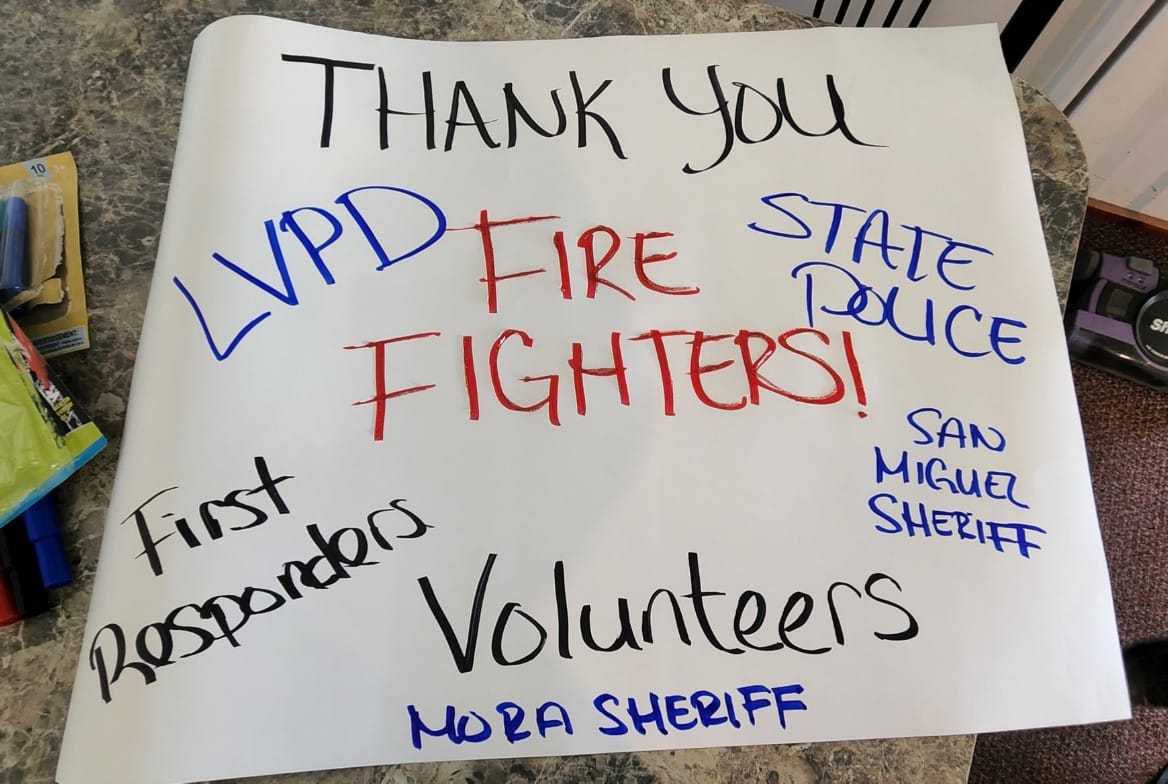 THANK YOU
LVPD
FIRE
FIGHTERS!
STATE
POLICE
SAN
MIGUEL
SHERIFF
First
Responders
Volunteers
MORA SHERIFF
10